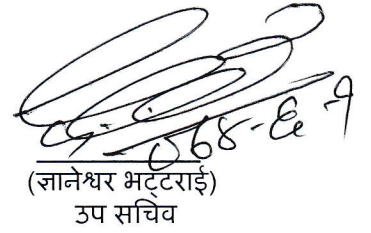 ०६४-६-१
(ज्ञानेश्वर भट्टराई)
उप सचिव